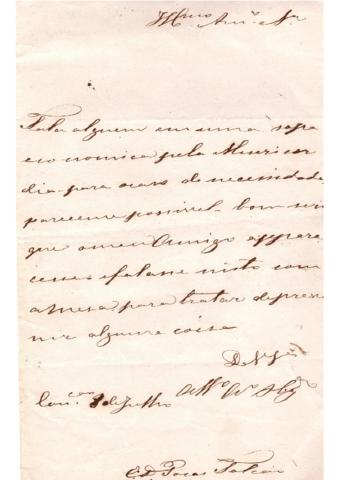 Illmo Amo e Sr
Falla alguem em uma sopa
economica pela Mizericor
dia para acaso de necessidade
pareceme possivel - bom seria
que o meu Amigo appare
cesse e falasse nisto com
a Meza para tratar de preve
nir alguma coisa
De V. Sa
8 de Julho